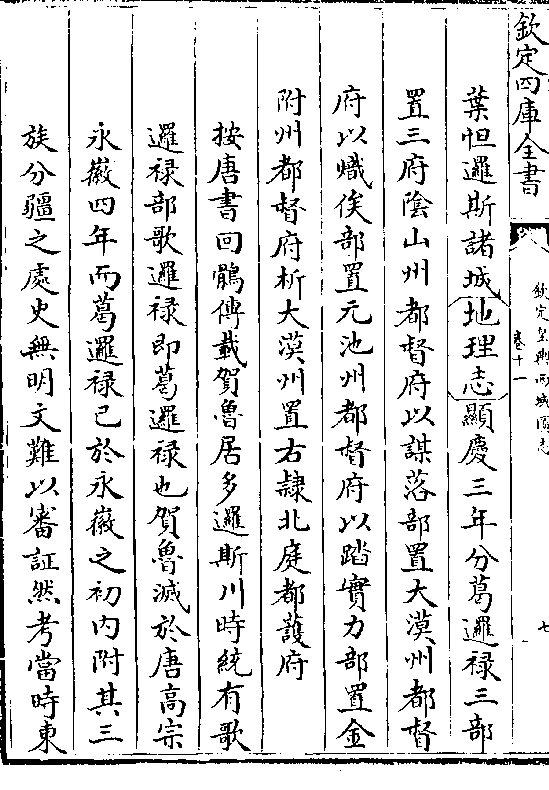 欽定四庫全書
欽定皇輿西域圖志
卷十一
七
葉怛邏斯諸城地理志顯慶三年分葛邏禄三部
置三府陰山州都督府以謀落部置大漠州都督
府以熾俟部置元池州都督府以踏實力部置金
附州都督府析大漠州置右隸北庭都護府
按唐書回鶻傳載賀魯居多邏斯川時統有歌
邏禄部歌邏禄即葛邏禄也賀魯滅於唐高宗
永徽四年而葛邏禄已於永徽之初内附其三
族分疆之處史無明文難以審証然考當時東